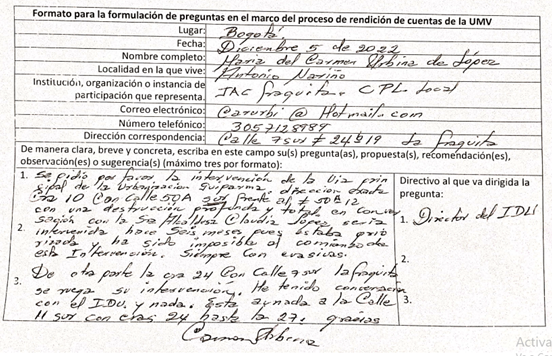 Formato para la formulación de preguntas en el marco del proceso de rendición de cuentas de la UMV
Lugar: Bogotá
Fecha: Diciembre 5 de 2022
Nombre completo: Maria del Carmen Urbina de López
Localidad en la que vive: Antonio Nariño
Institución, organización o instancia de participación que representa: JAC fraguita. CPL. Local
Correo electrónico: Carurbi @ Hotmail.com
Número telefónico: 3057128989
Dirección correspondencia: Calle 7 sur # 24 19 la fraguita
De manera clara, breve y concreta, escriba en este campo su(s) pregunta(as), propuesta(s), recomendación(es),
observación(es) o sugerencia(s) (máximo tres por formato):
1. Se pidió por favor la intervención de la Via prin
sipal de la Urbanización direccion exacta
Cra 10 Con Calle 50A sur frente al # 50A 12
con una destrucción profunda y total en conver
2. sación con la Sra Alcaldesa Claudia López seria
intervenida hace seis meses pues estaba prio
rizada y ha sido imposible al comienzo de
esta Intervención. Siempre con evasivas.
3. De otra parte la cra 24 Con Calle 7 sur la fraguita
se ruega su intervención. He tenido conversación
con el IDU. y nada. Esta aunada a la Calle
11 sur con cras 24 hasta la 27. gracias
Carmen Urbina
Directivo al que va dirigida la
pregunta:
1. Director del IDU
2.
3.
Activa